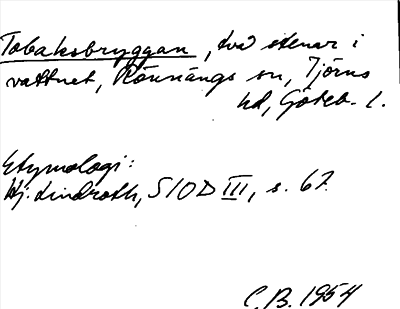 Tobaksbryggan, två stenar i
vattnet, Rönnängs sn, Tjörns
hd, Göteb. l.
Etymologi:
Hj. Lindroth, SIOD III, s. 67.
C.B. 1954